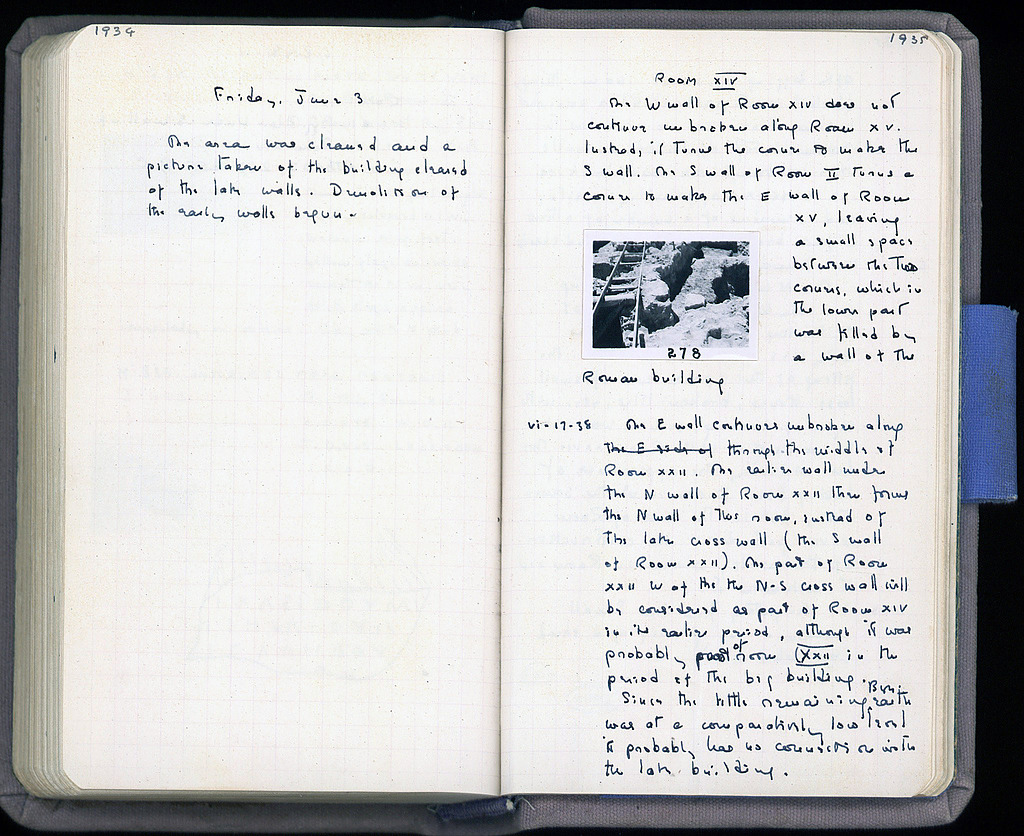 1934
Friday, June 3
The area was cleaned and a
picture taken of the building cleared
of the late walls. Demolition of
the early walls begun.
1935
ROOM XIV
The W wall of Room XIV does not
continue unbroken along Room XV.
Instead, it turns the corner to make the
S wall. The S wall of Room II turns a
corner to make the E wall of Room
XV, leaving
a small space
between the two
corners, which in
the lower part
was filled by
a wall of the
278
Roman building
vi-17-38 The E wall continues unbroken along
the E side of through the middle of
Room XXII. The earlier wall under
the N wall of Room XXII then forms
the N wall of this room, instead of
the late cross wall (the S wall
of Room XXII). The part of Room
XXII W of the the N-S cross wall will
be considered as part of Room XIV
in its earlier period, although it was
probably part of room XXII in the
period of the big building.
Since the little remaining Burnt earth
was at a comparatively low level
it probably has no connection with
the late building.